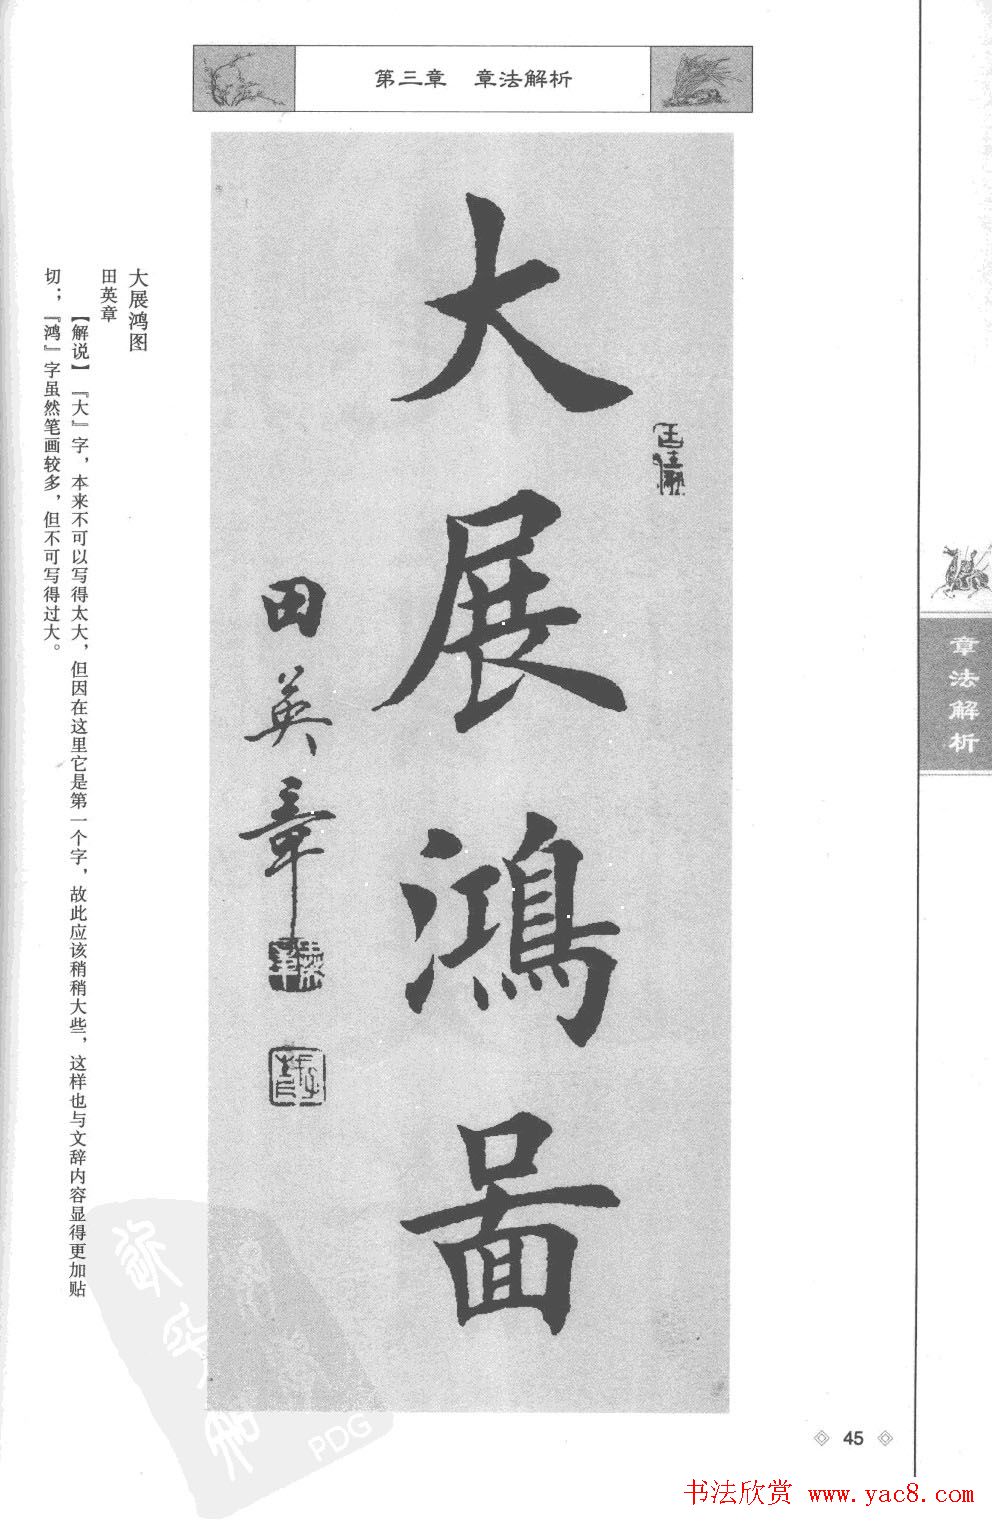 第三章 章法解析
大展鸿图
田英章
大展鸿图
田英章
【解说】『大』字，本来不可以写得太大，但因在这里它是第一个字，故此应该稍稍大些，这样也与文辞内容显得更加贴
切；『鸿』字虽然笔画较多，但不可写得过大。
章法解析
45
PDG
书法欣赏 www.yac8.com